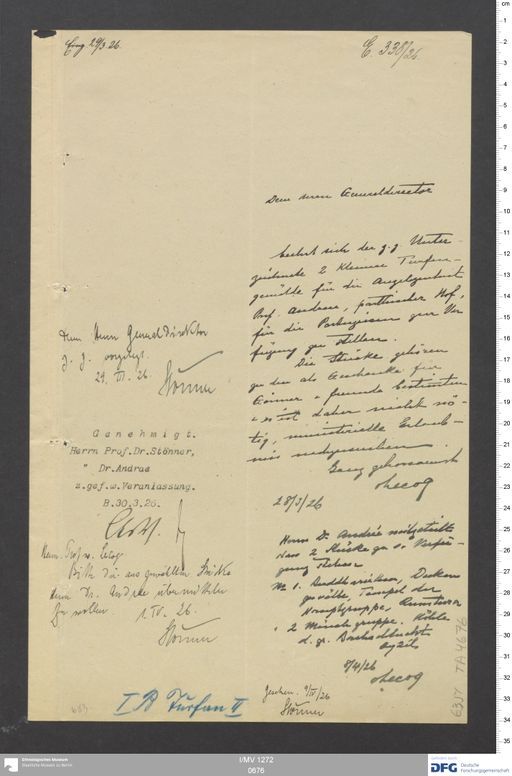 Eing. 29/3. 26.
E. 338/26.
Dem Herrn Generaldirector
beehrt sich der g. g. Unter-
zeichnete 2 kleine Turfan-
gemälde für die Angelegenheit
Prof. Andrae, parthischer Hof,
für die Parthezieren zur Ver
fügung zu stellen.
Die Stücke gehören
zu den als Geschenke für
Gönner u. freunde bestimmten
u es ist daher nicht nö-
tig, ministerielle Erlaub-
nis nachzusuchen
Ganz gehorsamst
Lecoq
28/3/26
Dem Herrn Generaldirektor
g. g. vorgelegt.
29. III. 26.
Stönner
Genehmigt.
Herrn Prof.Dr.Stönner,
" Dr.Andrae
z.gef.w.Veranlassung.
B.30.3.26.
Herrn Prof. v. Lecoq
Bitte die ausgewählten Stücke
Herrn Dr. Andrae übermitteln
zu wollen. 1. IV. 26.
Stönner
Herrn Dr. Andrae mitgeteilt
dass 2 Stücke zu s. Verfü-
gung stehen
No 1. Buddhareihen, Decken
gewölbe, Tempel der
Hauptgruppe,
" 2 Mönchgruppe. Höhle
d. gr.
8/4/26
Lecoq
Geschen. 9/IV/26
Stönner
I B Turfan II
TA 4676
Ethnologisches Museum
Staatliche Museen zu Berlin
I/MV 1272
0676
DFG Deutsche
Forschungsgemeinschaft
cm
1
2
3
4
5
6
7
8
9
10
11
12
13
14
15
16
17
18
19
20
21
22
23
24
25
26
27
28
29
30
31
32
33
34
35